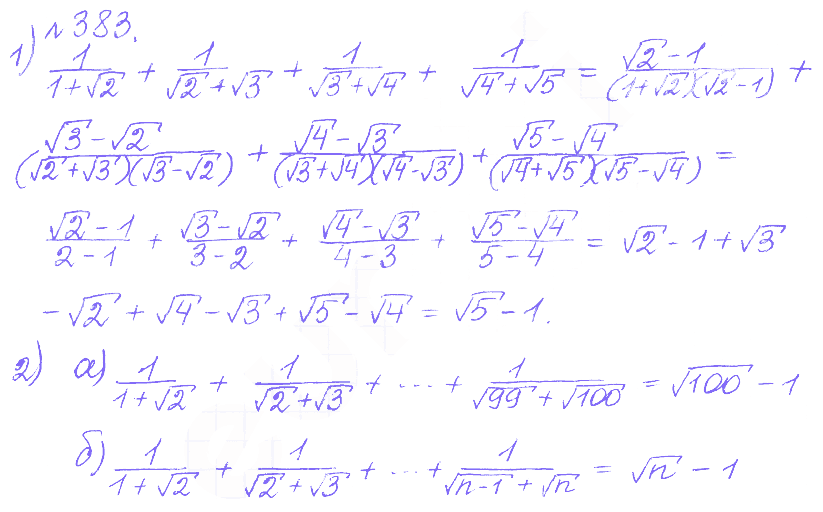 №383.
1) 1/(1+√2) + 1/(√2+√3) + 1/(√3+√4) + 1/(√4+√5) = (√2-1)/((1+√2)(√2-1)) +
(√3-√2)/((√2+√3)(√3-√2)) + (√4-√3)/((√3+√4)(√4-√3)) + (√5-√4)/((√4+√5)(√5-√4)) =
(√2-1)/(2-1) + (√3-√2)/(3-2) + (√4-√3)/(4-3) + (√5-√4)/(5-4) = √2-1+√3
-√2+√4-√3+√5-√4=√5-1.
2) а) 1/(1+√2) + 1/(√2+√3) + ... + 1/(√99+√100) = √100-1
б) 1/(1+√2) + 1/(√2+√3) + ... + 1/(√n-1+√n) = √n-1